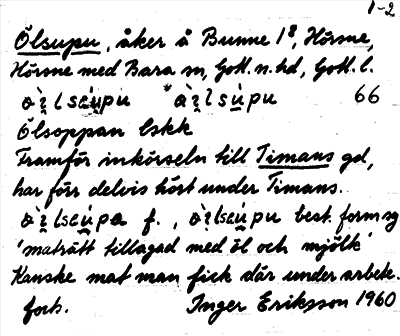 1-2
Ölsupu, åker å Bunne 1⁸, Hörsne,
Hörsne med Bara sn, Gotl. n. hd, Gotl. l.
66
Ölsoppan Eskk
Framför inkörseln till Timans gd,
har förr delvis hört under Timans.
f., best. form sg
'maträtt tillagad med öl och mjölk'
Kanske mat man fick där under arbete.
forts. Inger Eriksson 1960